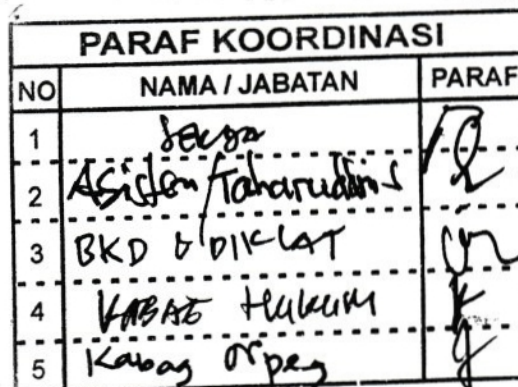 PARAF KOORDINASI
NO NAMA / JABATAN PARAF
1 Sekda
2 Asisten / Taharuddin
3 BKD & DIKLAT
4 KABAG HUKUM
5 Kabag Orpeg